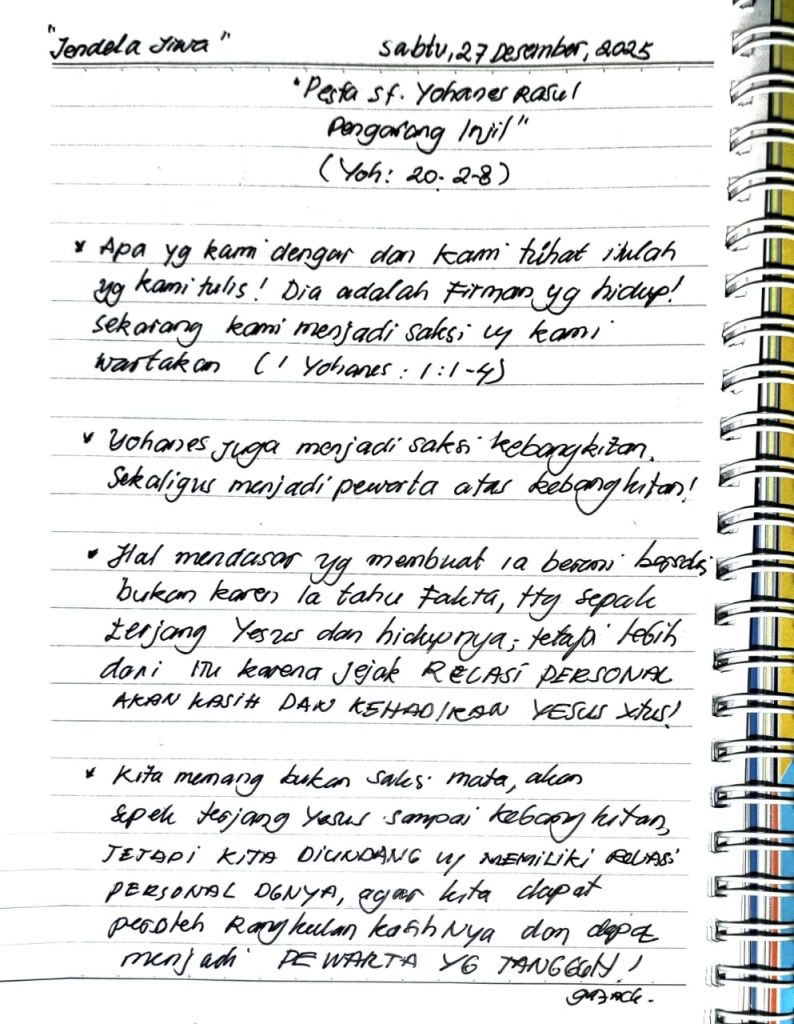 "Jendela Jiwa" Sabtu, 27 Desember, 2025
"Pesta St. Yohanes Rasul
Pengarang Injil"
(Yoh: 20. 2-8)
* Apa yg kami dengar dan kami lihat itulah
yg kami tulis! Dia adalah Firman yg hidup!
Sekarang kami menjadi saksi yg kami
wartakan (1 Yohanes : 1:1-4)
* Yohanes juga menjadi saksi kebangkitan.
Sekaligus menjadi pewarta atas kebangkitan!
* Hal mendasar yg membuat ia berani bersaksi
bukan karen ia tahu Fakta, ttg sepak
terjang Yesus dan hidupnya; tetapi lebih
dari itu karena jejak RELASI PERSONAL
AKAN KASIH DAN KEHADIRAN YESUS Xtus!
* Kita memang bukan saksi mata, akan
sepak terjang Yesus sampai kebangkitan,
TETAPI KITA DIUNDANG MEMILIKI RELASI
PERSONAL DGNYA, agar kita dapat
peroleh Rangkulan kasihNya dan dapat
menjadi PEWARTA YG TANGGUH!